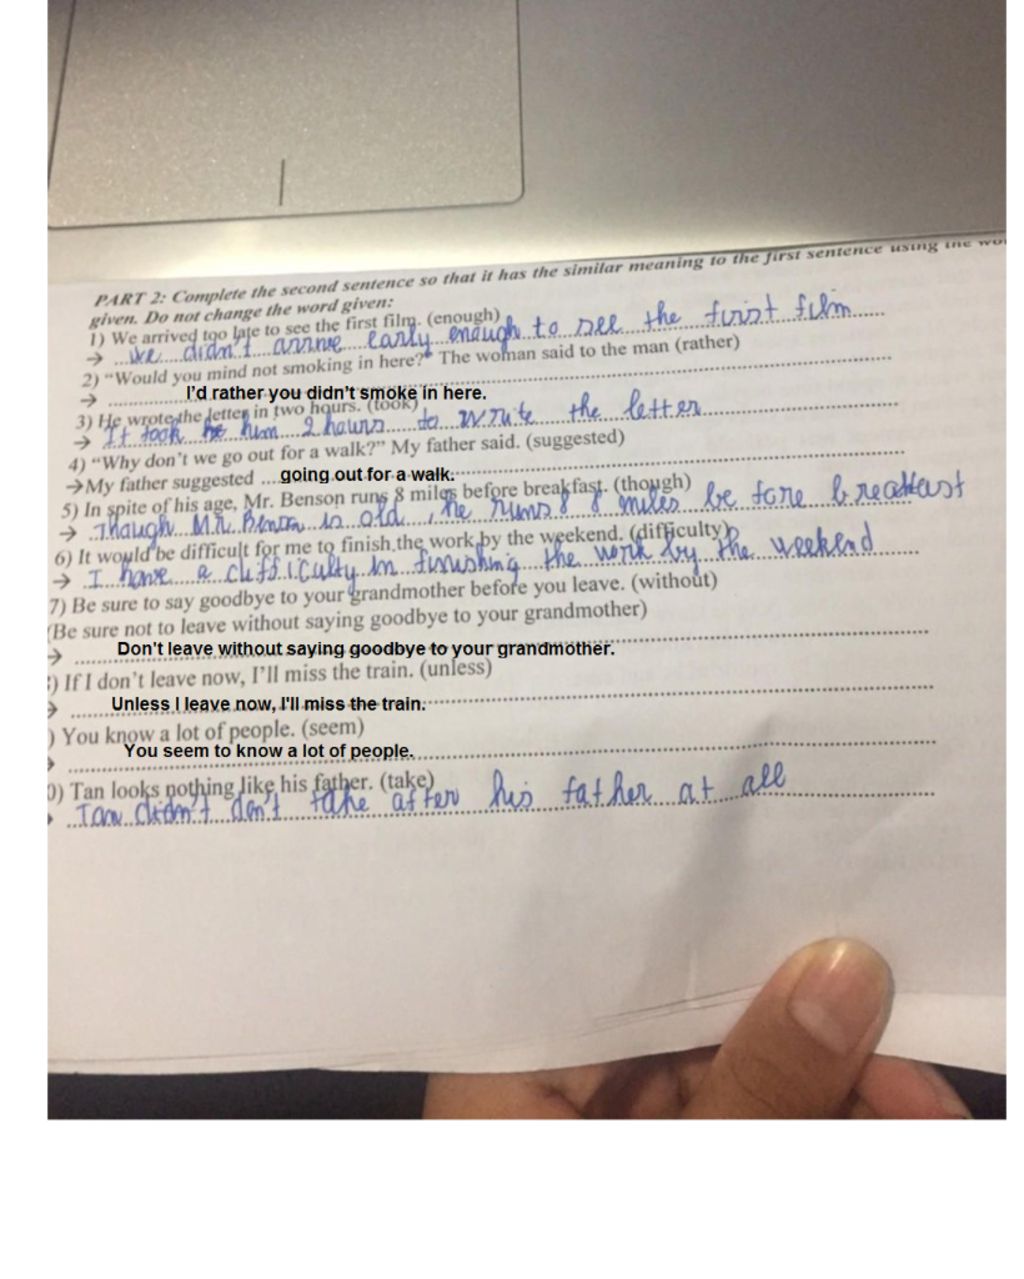 PART 2: Complete the second sentence so that it has the similar meaning to the first sentence using the
given. Do not change the word given:
1) We arrived too late to see the first film. (enough)
→ We didn't arrive early enough to see the first film
2) "Would you mind not smoking in here?" The woman said to the man (rather)
→ I'd rather you didn't smoke in here.
3) He wrote the letter in two hours. (took)
→ It took he him 2 hours to write the letter
4) "Why don't we go out for a walk?" My father said. (suggested)
→My father suggested ....going out for a walk.
5) In spite of his age, Mr. Benson runs 8 miles before breakfast. (though)
→ Though Mr. Benson is old, he runs 8 8 miles be fore breakfast
6) It would be difficult for me to finish the work by the weekend. (difficulty)
→ I have a difficulty in finishing the work by the weekend
7) Be sure to say goodbye to your grandmother before you leave. (without)
(Be sure not to leave without saying goodbye to your grandmother)
→ Don't leave without saying goodbye to your grandmother.
) If I don't leave now, I'll miss the train. (unless)
Unless I leave now, I'll miss the train.
) You know a lot of people. (seem)
You seem to know a lot of people.
0) Tan looks nothing like his father. (take)
Tan didn't don't take after his father at all